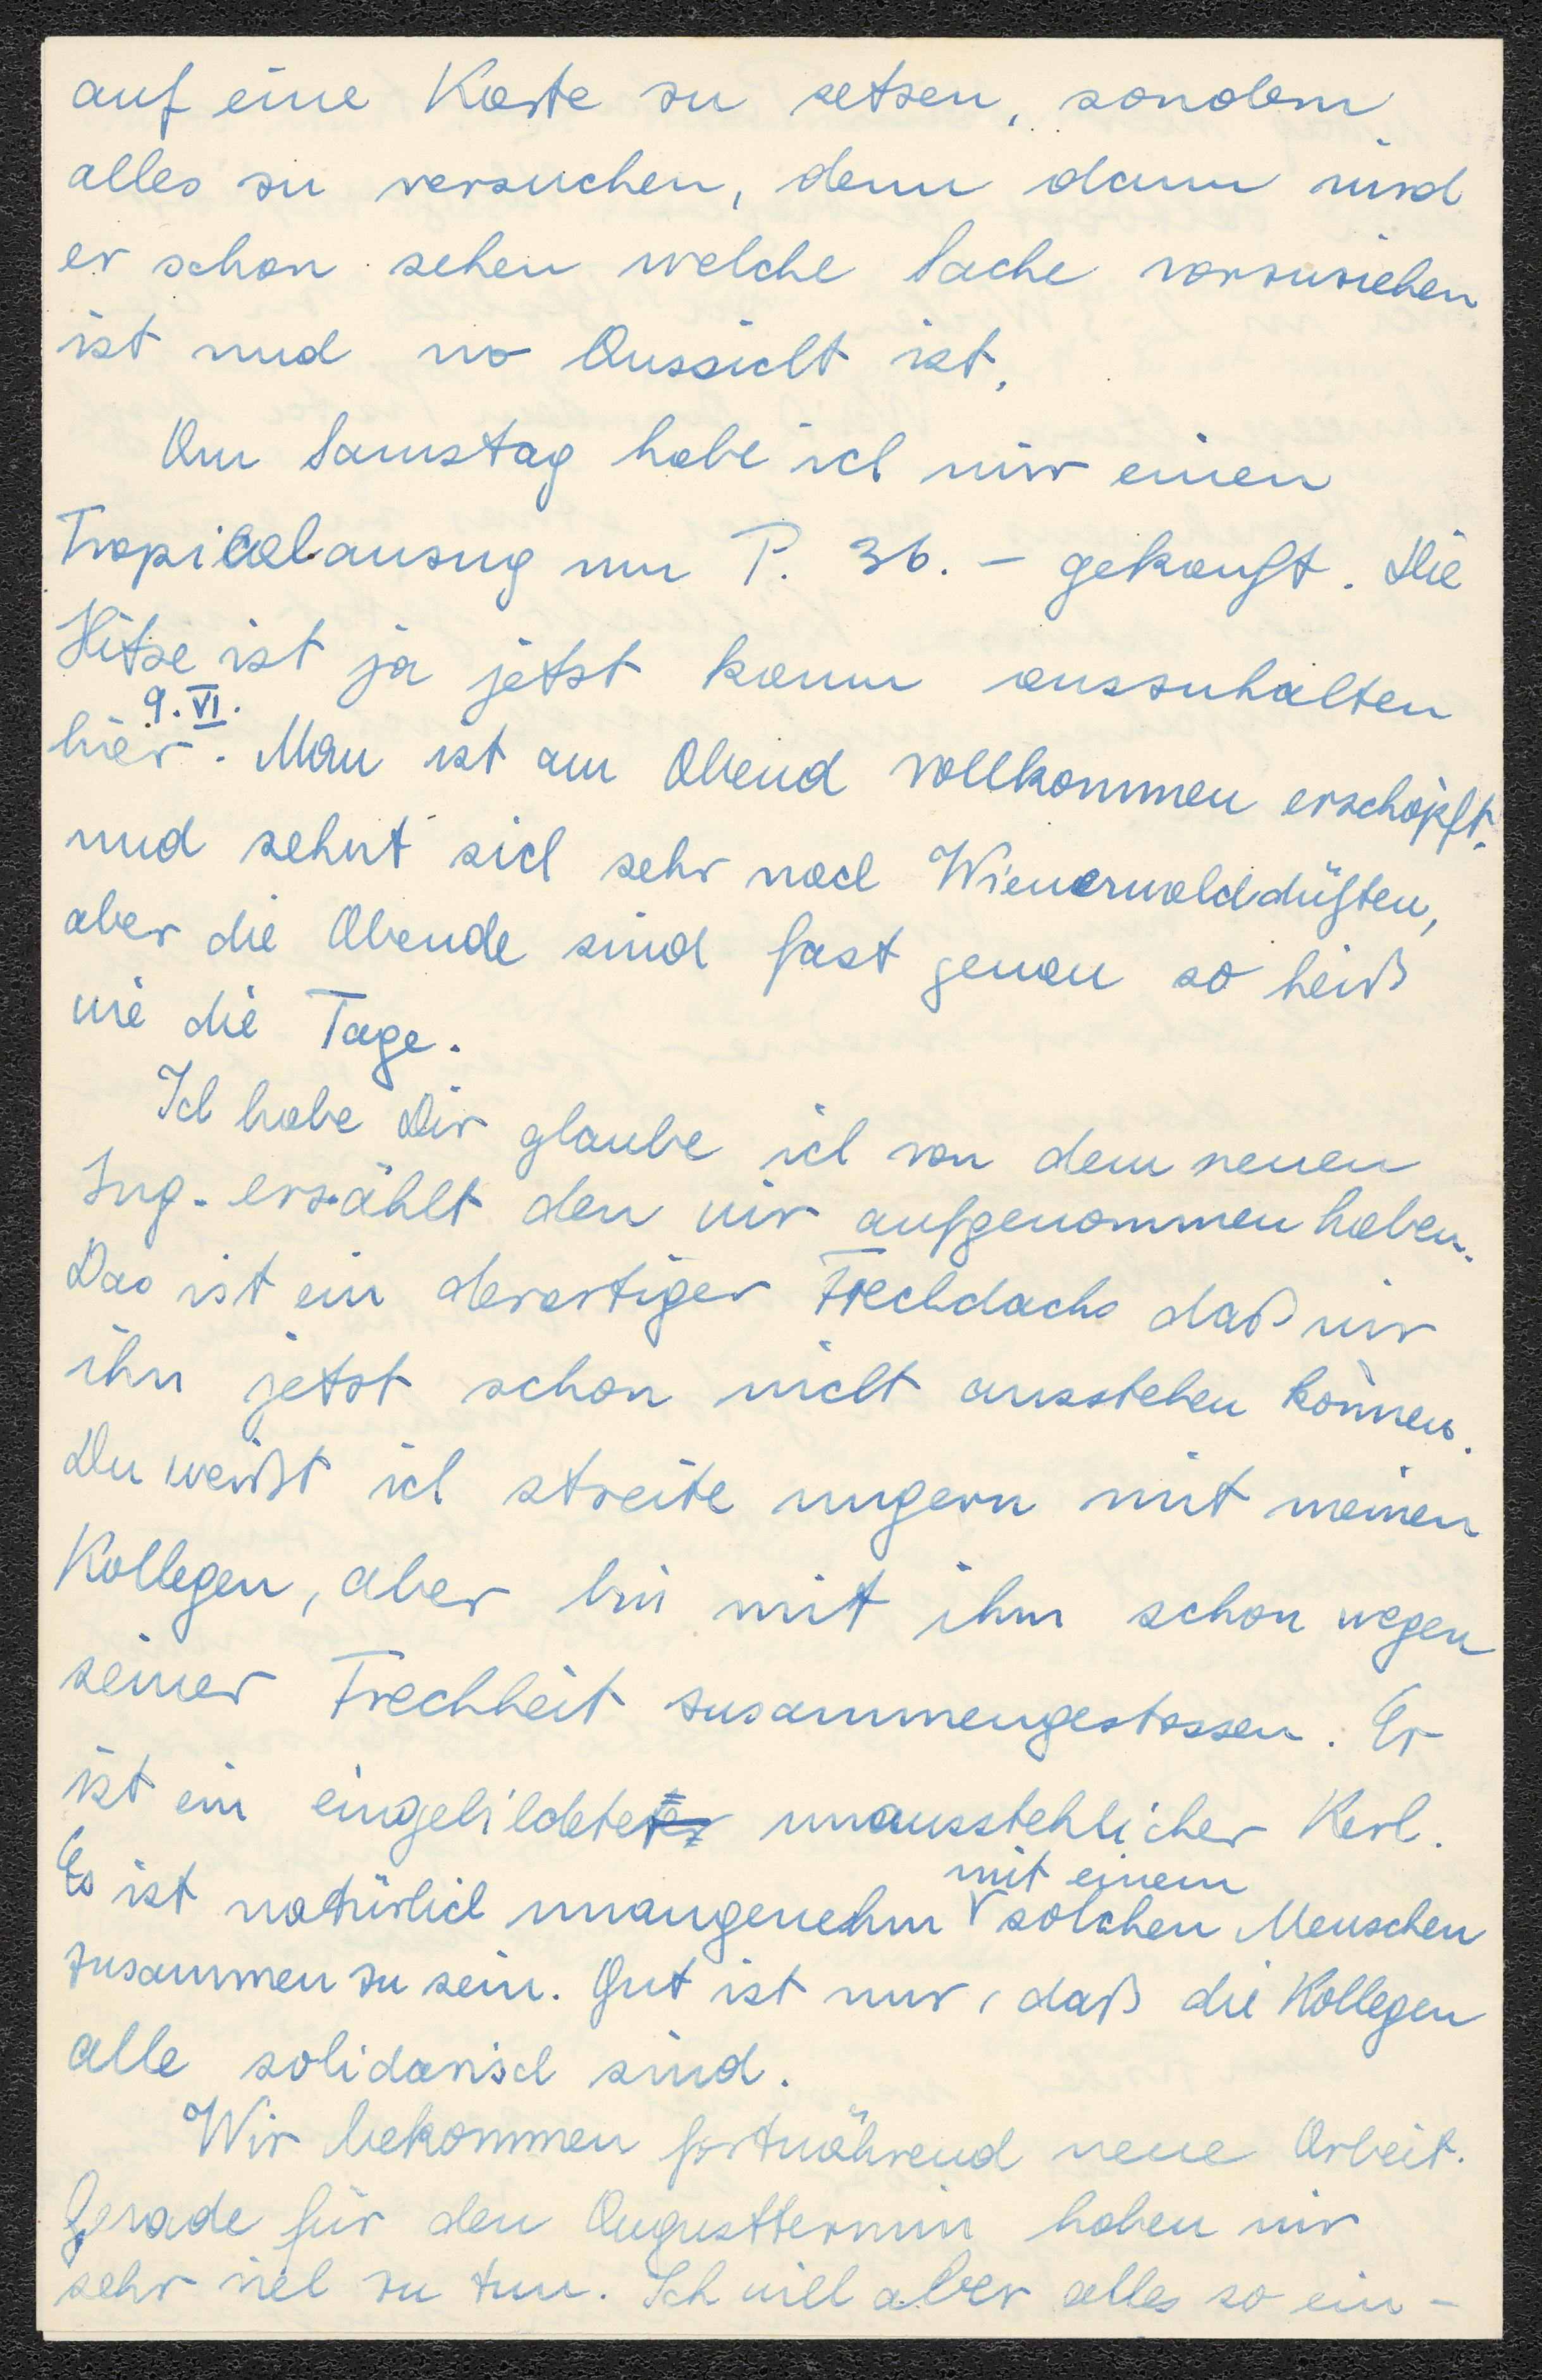 auf eine Karte zu setzen, sondern
alles zu versuchen, denn dann wird
er schon sehen welche Sache vorzuziehen
ist und wo Aussicht ist.
Am Samstag habe ich mir einen
Tropicalanzug um P. 36.– gekauft. Die
Hitze ist ja jetzt kaum auszuhalten
9.VI.
hier. Man ist am Abend vollkommen erschöpft.
und sehnt sich sehr nach Wienerwalddüften,
aber die Abende sind fast genau so heiß
wie die Tage.
Ich habe Dir glaube ich von dem neuen
Ing. erzählt den wir aufgenommen haben.
Das ist ein derartiger Frechdachs daß wir
ihn jetzt schon nicht ausstehen können.
Du weißt ich streite ungern mit meinen
Kollegen, aber bin mit ihm schon wegen
seiner Frechheit zusammengestossen. Er
ist ein eingebildeter unausstehlicher Kerl.
mit einem
Es ist natürlich unangenehm solchen Menschen
zusammen zu sein. Gut ist nur, daß die Kollegen
alle solidarisch sind.
Wir bekommen fortwährend neue Arbeit.
Gerade für den Augusttermin haben wir
sehr viel zu tun. Ich will aber alles so ein-